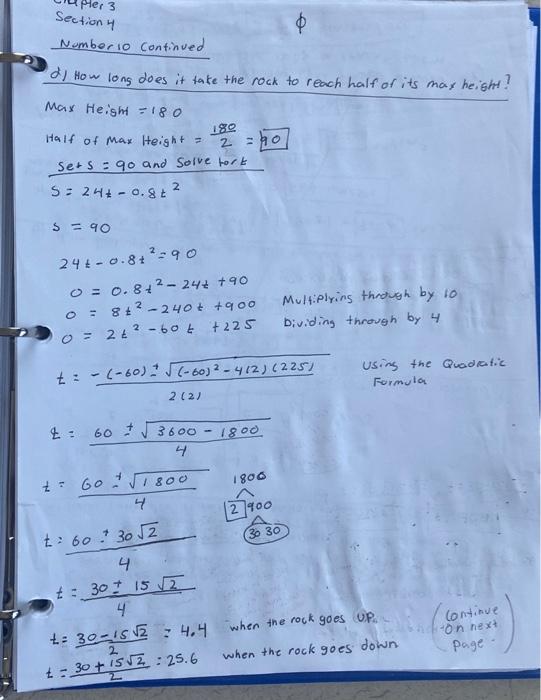 Chapter 3
Section 4
φ
Number 10 Continued
d) How long does it take the rock to reach half of its max height?
Max Height = 180
Half of Max Height = 180/2 = 90
Set S = 90 and Solve for t
S = 24t - 0.8t²
S = 90
24t - 0.8t² = 90
0 = 0.8t² - 24t + 90
0 = 8t² - 240t + 900 Multiplying through by 10
0 = 2t² - 60t + 225 Dividing through by 4
t = -(-60) ± √((-60)² - 4(2)(225)) / 2(2) Using the Quadratic Formula
t = 60 ± √(3600 - 1800) / 4
t = 60 ± √1800 / 4 1800
2 900
30 30
t = 60 ± 30√2 / 4
t = 30 ± 15√2 / 4
t = 30 - 15√2 / 2 = 4.4 when the rock goes up.
t = 30 + 15√2 / 2 = 25.6 when the rock goes down
(Continue on next page.)